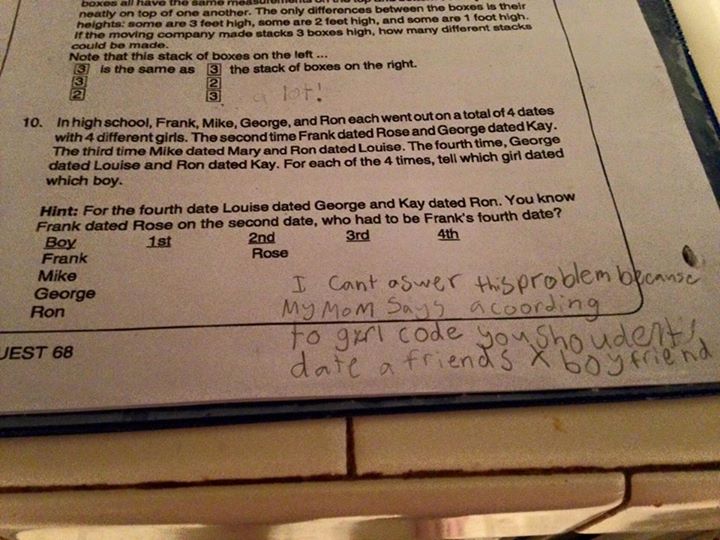 boxes all have the same
neatly on top of one another. The only differences between the boxes is their
heights: some are 3 feet high, some are 2 feet high, and some are 1 foot high.
If the moving company made stacks 3 boxes high, how many different stacks
could be made.
Note that this stack of boxes on the left ...
3 is the same as 3 the stack of boxes on the right.
3 2
2 3
a lot!
10. In high school, Frank, Mike, George, and Ron each went out on a total of 4 dates
with 4 different girls. The second time Frank dated Rose and George dated Kay.
The third time Mike dated Mary and Ron dated Louise. The fourth time, George
dated Louise and Ron dated Kay. For each of the 4 times, tell which girl dated
which boy.
Hint: For the fourth date Louise dated George and Kay dated Ron. You know
Frank dated Rose on the second date, who had to be Frank's fourth date?
Boy 1st 2nd 3rd 4th
Frank Rose
Mike
George
Ron
I cant aswer this problem because
My Mom says acoording
to girl code you shoudent
date a friends X boyfriend
UEST 68